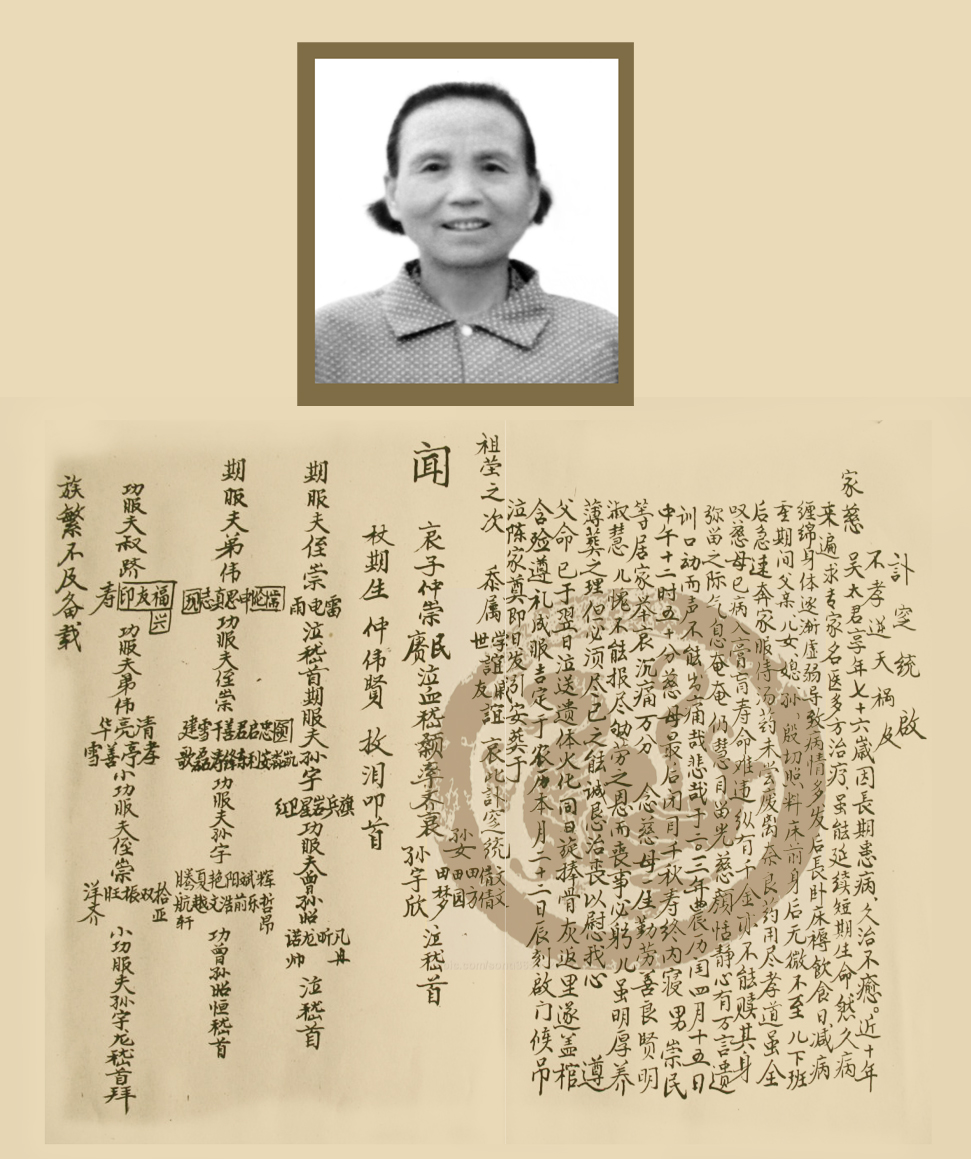 讣窆统啟
不孝逆天祸及
家慈 吴太君享年七十六歲因長期患病久治不癒。近十年
来遍求专家名医多方治疗虽能延续短期生命然久病
缠绵身体逐渐虚弱导致病情多发后長卧床褥飲食日减病
重期间父亲儿女、媳、孙殷切照料床前身后无微不至儿下班
后急速奔家服侍汤药未尝废离奈良药用尽孝道虽全
叹慈母已病入膏肓寿命难违纵有千金亦不能赎其身
弥留之际气息奄奄仍慧目留光慈颜恬静心有万言遗
训口动而声不能出痛哉悲哉于二〇二三年農历闰四月十五日
中午十二时五十分慈母最后闭目千秋寿终内寝 男崇民
等居家奉哀沉痛万分 念慈母一生勤劳善良贤明
淑慧儿愧不能报尽劬劳之恩而喪事必躬儿虽明厚养
薄葬之理但必须尽己之能诚恳治丧以慰我心 遵
父命已于翌日泣送遗体火化同日旋捧骨灰返里遂盖棺
含殓遵礼成服吉定于农历本月二十二日辰刻啟门候吊
泣陈家奠即日发引安葬于
祖茔之次 忝属 世学友 誼 哀此讣窆统
闻 哀子仲崇民 泣血嵇颡率齐衰 孙女 田田 梦园 四方 倩倩 文文 孙宇欣 泣嵇首
杖期生仲伟賢抆泪叩首
期服夫侄崇雷电雨泣嵇首期服夫孙宇旗兵岩星卫红功服夫曾孙昭凡冉昕龙诺帅泣嵇首
期服夫弟伟 功服夫侄崇 功服夫孙宇 功曾孙昭恒嵇首
功服夫叔跻福友印兴寿功服夫弟伟清孝亮亭华善雪小功服夫侄崇拾亚双振旺洋齐小功服夫孙宇龙嵇首拜
族繁不及备载